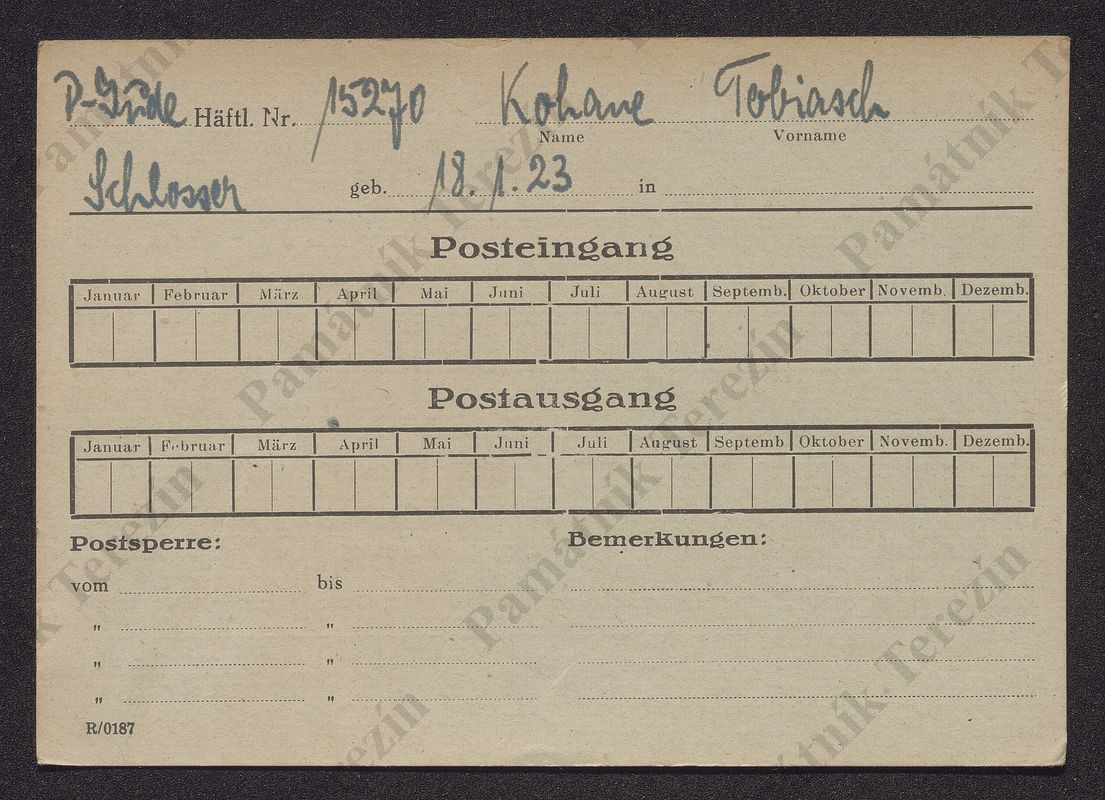 P-Jude Häftl. Nr. 15270 Kohane Tobiasch
Name Vorname
Schlosser geb. 18.1.23 in
Posteingang
Januar Februar März April Mai Juni Juli August Septemb. Oktober Novemb. Dezemb.
Postausgang
Januar Februar März April Mai Juni Juli August Septemb Oktober Novemb. Dezemb.
Postsperre: Bemerkungen:
vom bis
" "
" "
" "
R/0187
Památník Terezín